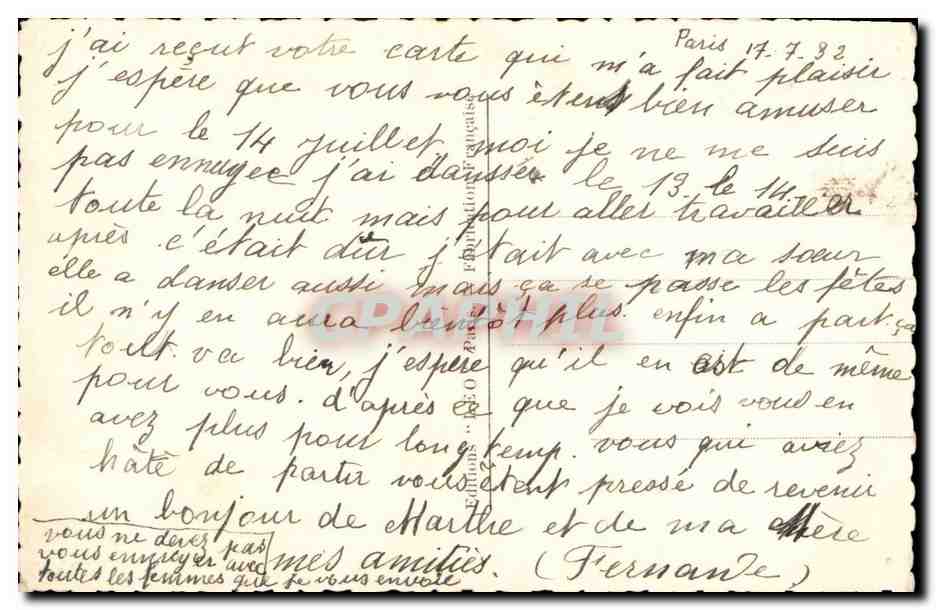 Paris 17.7.32
j'ai reçut votre carte qui m'a fait plaisir
j'espère que vous vous êtent bien amuser
pour le 14 juillet moi je ne me suis
pas ennuyee j'ai dansser le 13 le 14
toute la nuit mais pour aller travailler
après c'était dur j'était avec ma sœur
élle a danser aussi mais ça se passe les fêtes
il n'y en aura bientôt plus. enfin a part ça
tout va bien, j'espère qu'il en est de même
pour vous. d'après ce que je vois vous en
avez plus pour longtemp. vous qui aviez
hâte de partir vous êtent pressé de revenir
un bonjour de Marthe et de ma Mère
mes amitiés. (Fernande)
vous ne devez pas
vous ennuyer avec
toutes les femmes que je vous envoie
Editions "LEO" Paris Fabrication Française
CPAPHIL